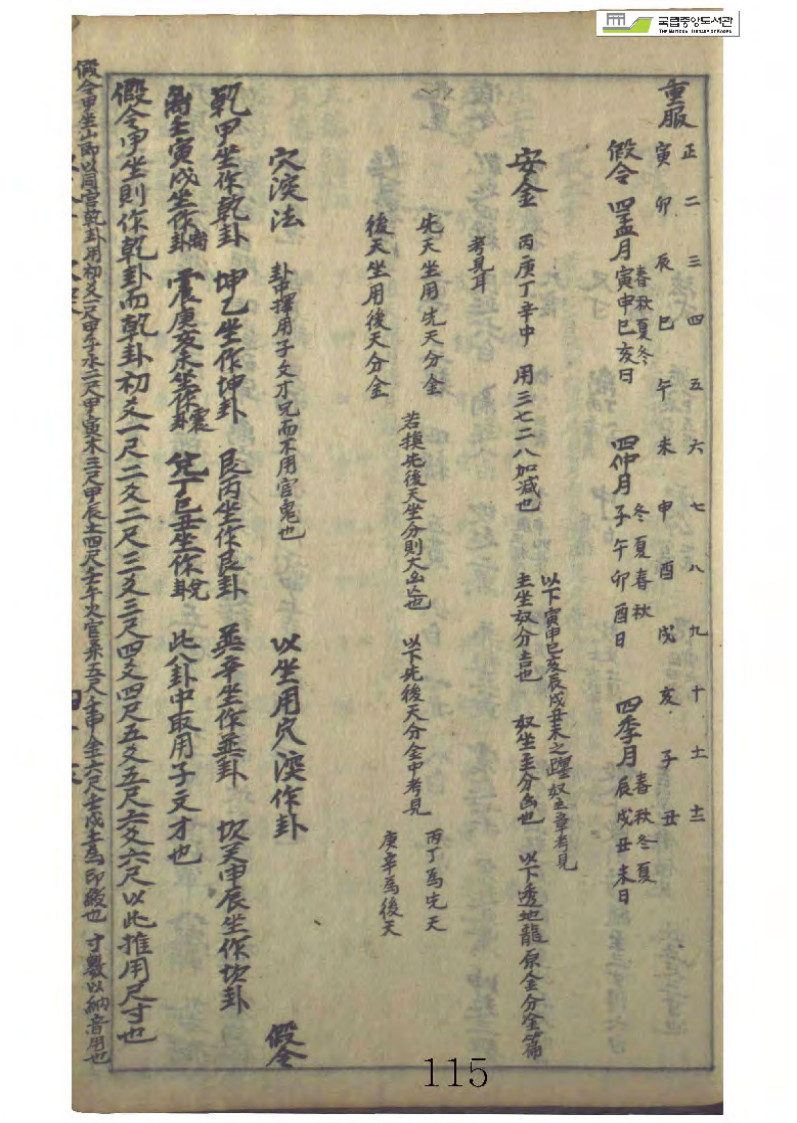 국립중앙도서관
THE NATIONAL LIBRARY OF KOREA
重服
正 二 三 四 五 六 七 八 九 十 十一 十二
寅 卯 辰 巳 午 未 申 酉 戌 亥 子 丑
假令 四孟月 春秋夏冬 寅申巳亥日 四仲月 冬夏春秋 子午卯酉日 四季月 春秋冬夏 辰戌丑未日
安金 丙庚丁辛中 用三七二八加減也 以下寅申巳亥辰戌丑未之 奴主章考見
主坐奴分吉也 奴坐主分凶也 以下透地龍原金分金篇
考見耳
先天坐用先天分金 若換先後天坐分則大凶也 以下先後天分金中考見 丙丁爲先天
後天坐用後天分金 庚辛爲後天
穴深法 卦中擇用子文才兄而不用官鬼也 以坐用穴深作卦 假令
乾甲坐作乾卦 坤乙坐作坤卦 艮丙坐作艮卦 巽辛坐作巽卦 坎癸申辰坐作坎卦
离壬寅戌坐作离卦 震庚亥未坐作震卦 兌丁巳丑坐作兌卦 此八卦中取用子文才也
假令甲坐則作乾卦而乾卦初爻一尺二爻二尺三爻三尺四爻四尺五爻五尺六爻六尺以此推用尺寸也
假令甲坐山卽以同宮乾卦用初爻一尺甲子水二尺甲寅木三尺甲辰土四尺壬午火官杀五尺壬申金六尺壬戌土爲印綬也 寸數以納音用也
115